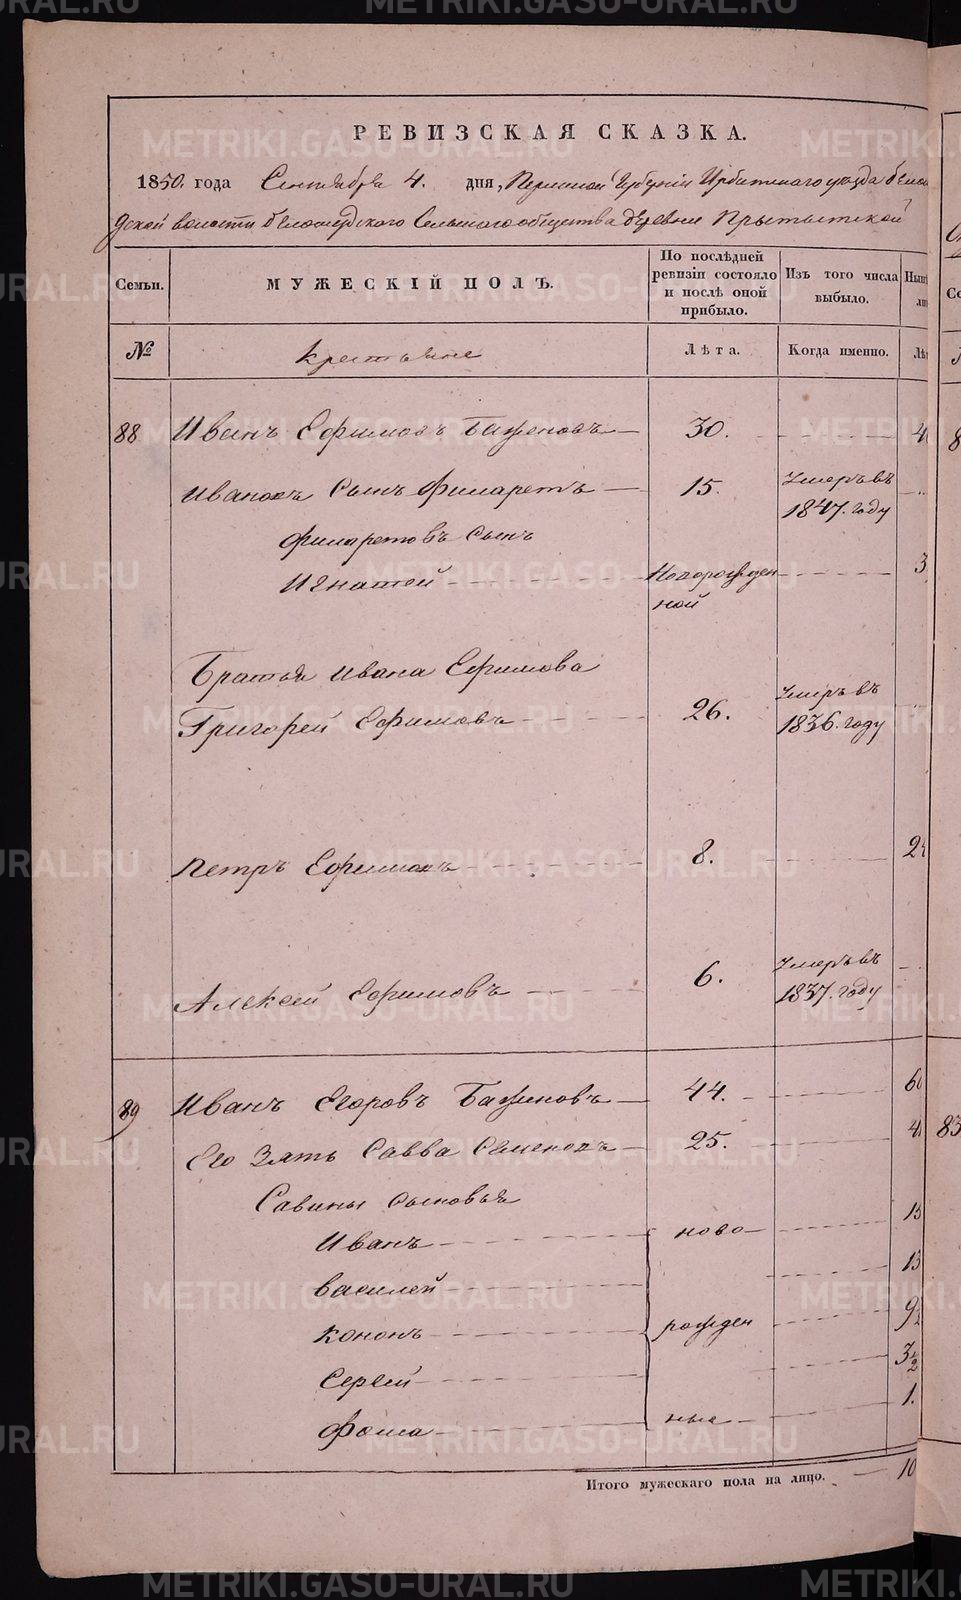 РЕВИЗСКАЯ СКАЗКА.
1850. года Сентября 4. дня, Пермской Губернiи Ирбитскаго уезда Бело
Семьи.
МУЖЕСКІЙ ПОЛЪ.
По послѣдней ревизіи состояло и послѣ оной прибыло.
Изъ того числа выбыло.
№
крестьяне
Лѣта.
Когда именно.
88 Иванъ Ефимовъ Баженовъ 30.
Ивановъ сынъ Филаретъ 15. Умеръ въ 1847. году
Филаретовъ сынъ
Игнатей Новорожденной 3
Братья Ивана Ефимова
Григорей Ефимовъ 26. Умеръ въ 1836. году
Петръ Ефимовъ 8.
Алексей Ефимовъ 6. Умеръ въ 1837. году
89 Иванъ Егоровъ Баженовъ 44. 60
Его Зять Савва Семеновъ 25.
Савины сыновья
Иванъ ново 15
Василей 13
Кононъ рожден 9½
Сергей 3½
Фома ные 1.
Итого мужескаго пола на лицо. 10
83
METRIKI.GASO-URAL.RU